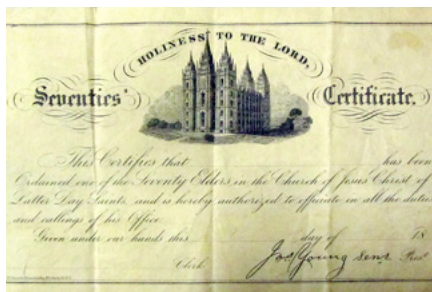 HOLINESS TO THE LORD,
Seventies' Certificate.
This Certifies that has been
Ordained one of the Seventy Elders in the Church of Jesus Christ of
Latter Day Saints, and is hereby authorized to officiate in all the duties
and callings of his Office.
Given under our hands this day of 18
Clerk. Jos Young Senr Prest